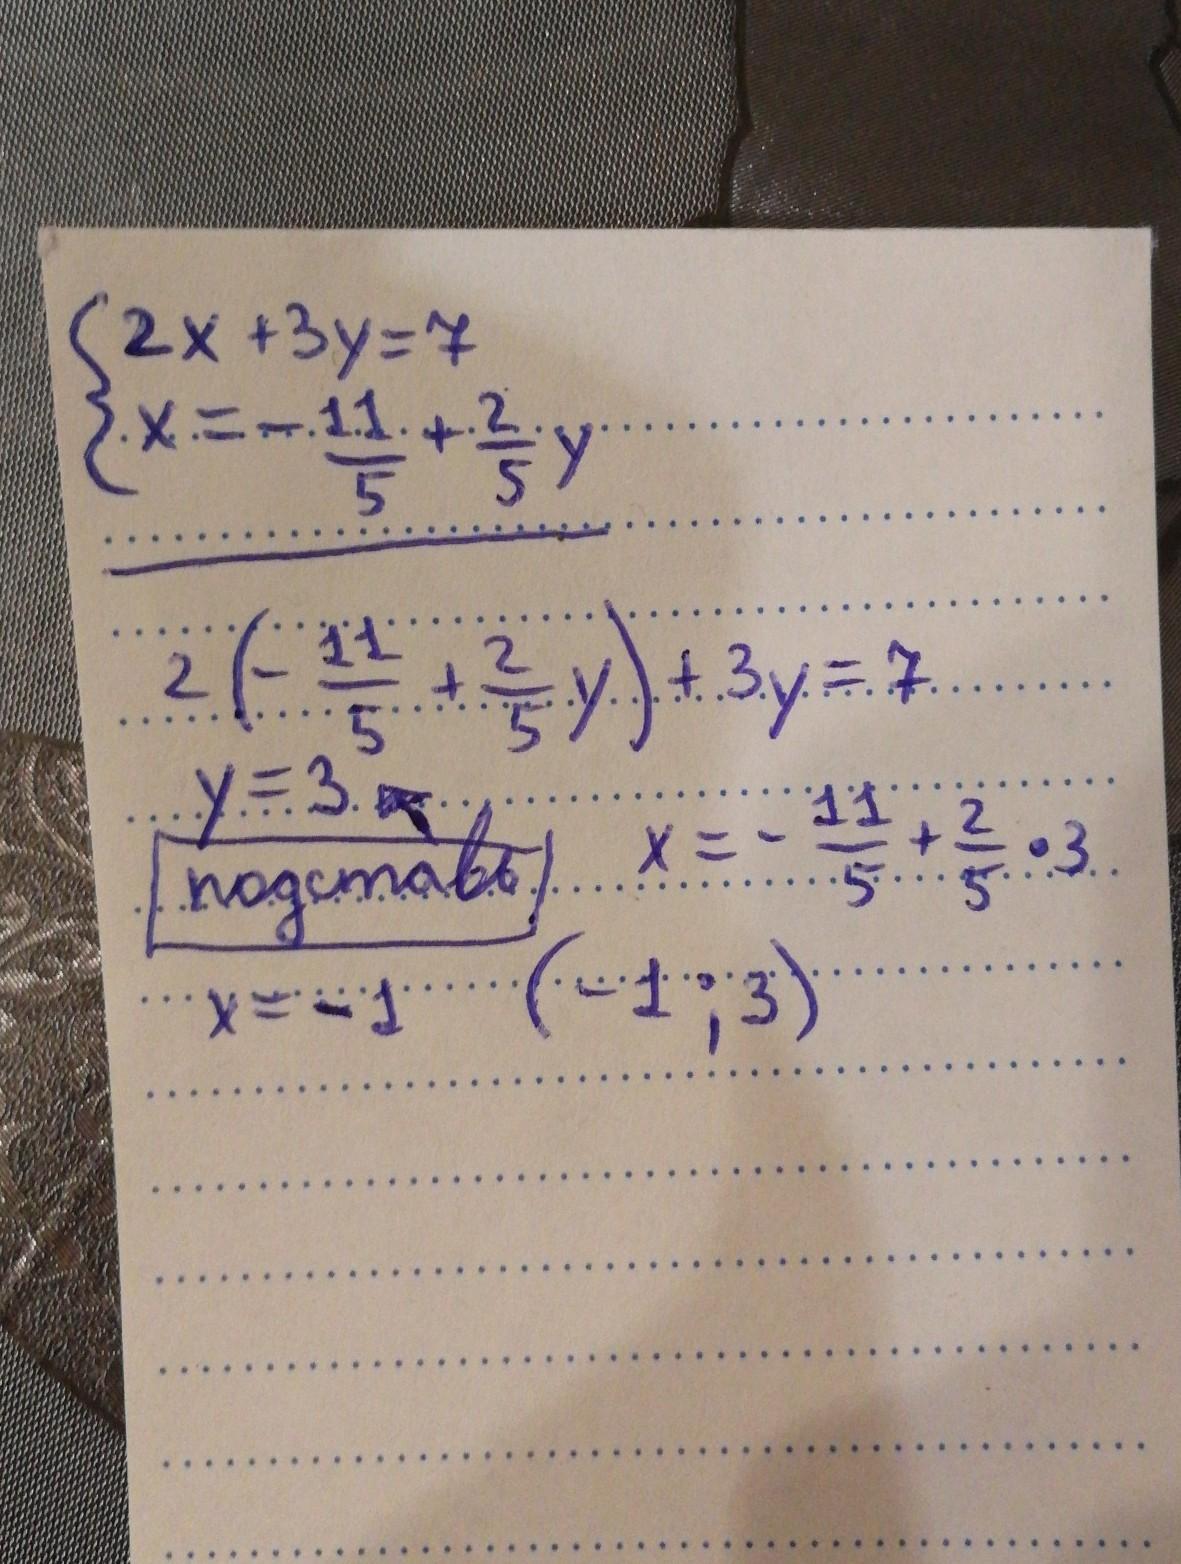 {2x + 3y = 7
x = - 11/5 + 2/5 y
2(- 11/5 + 2/5 y) + 3y = 7
y = 3
подставь x = - 11/5 + 2/5 • 3
x = - 1 (- 1 ; 3)